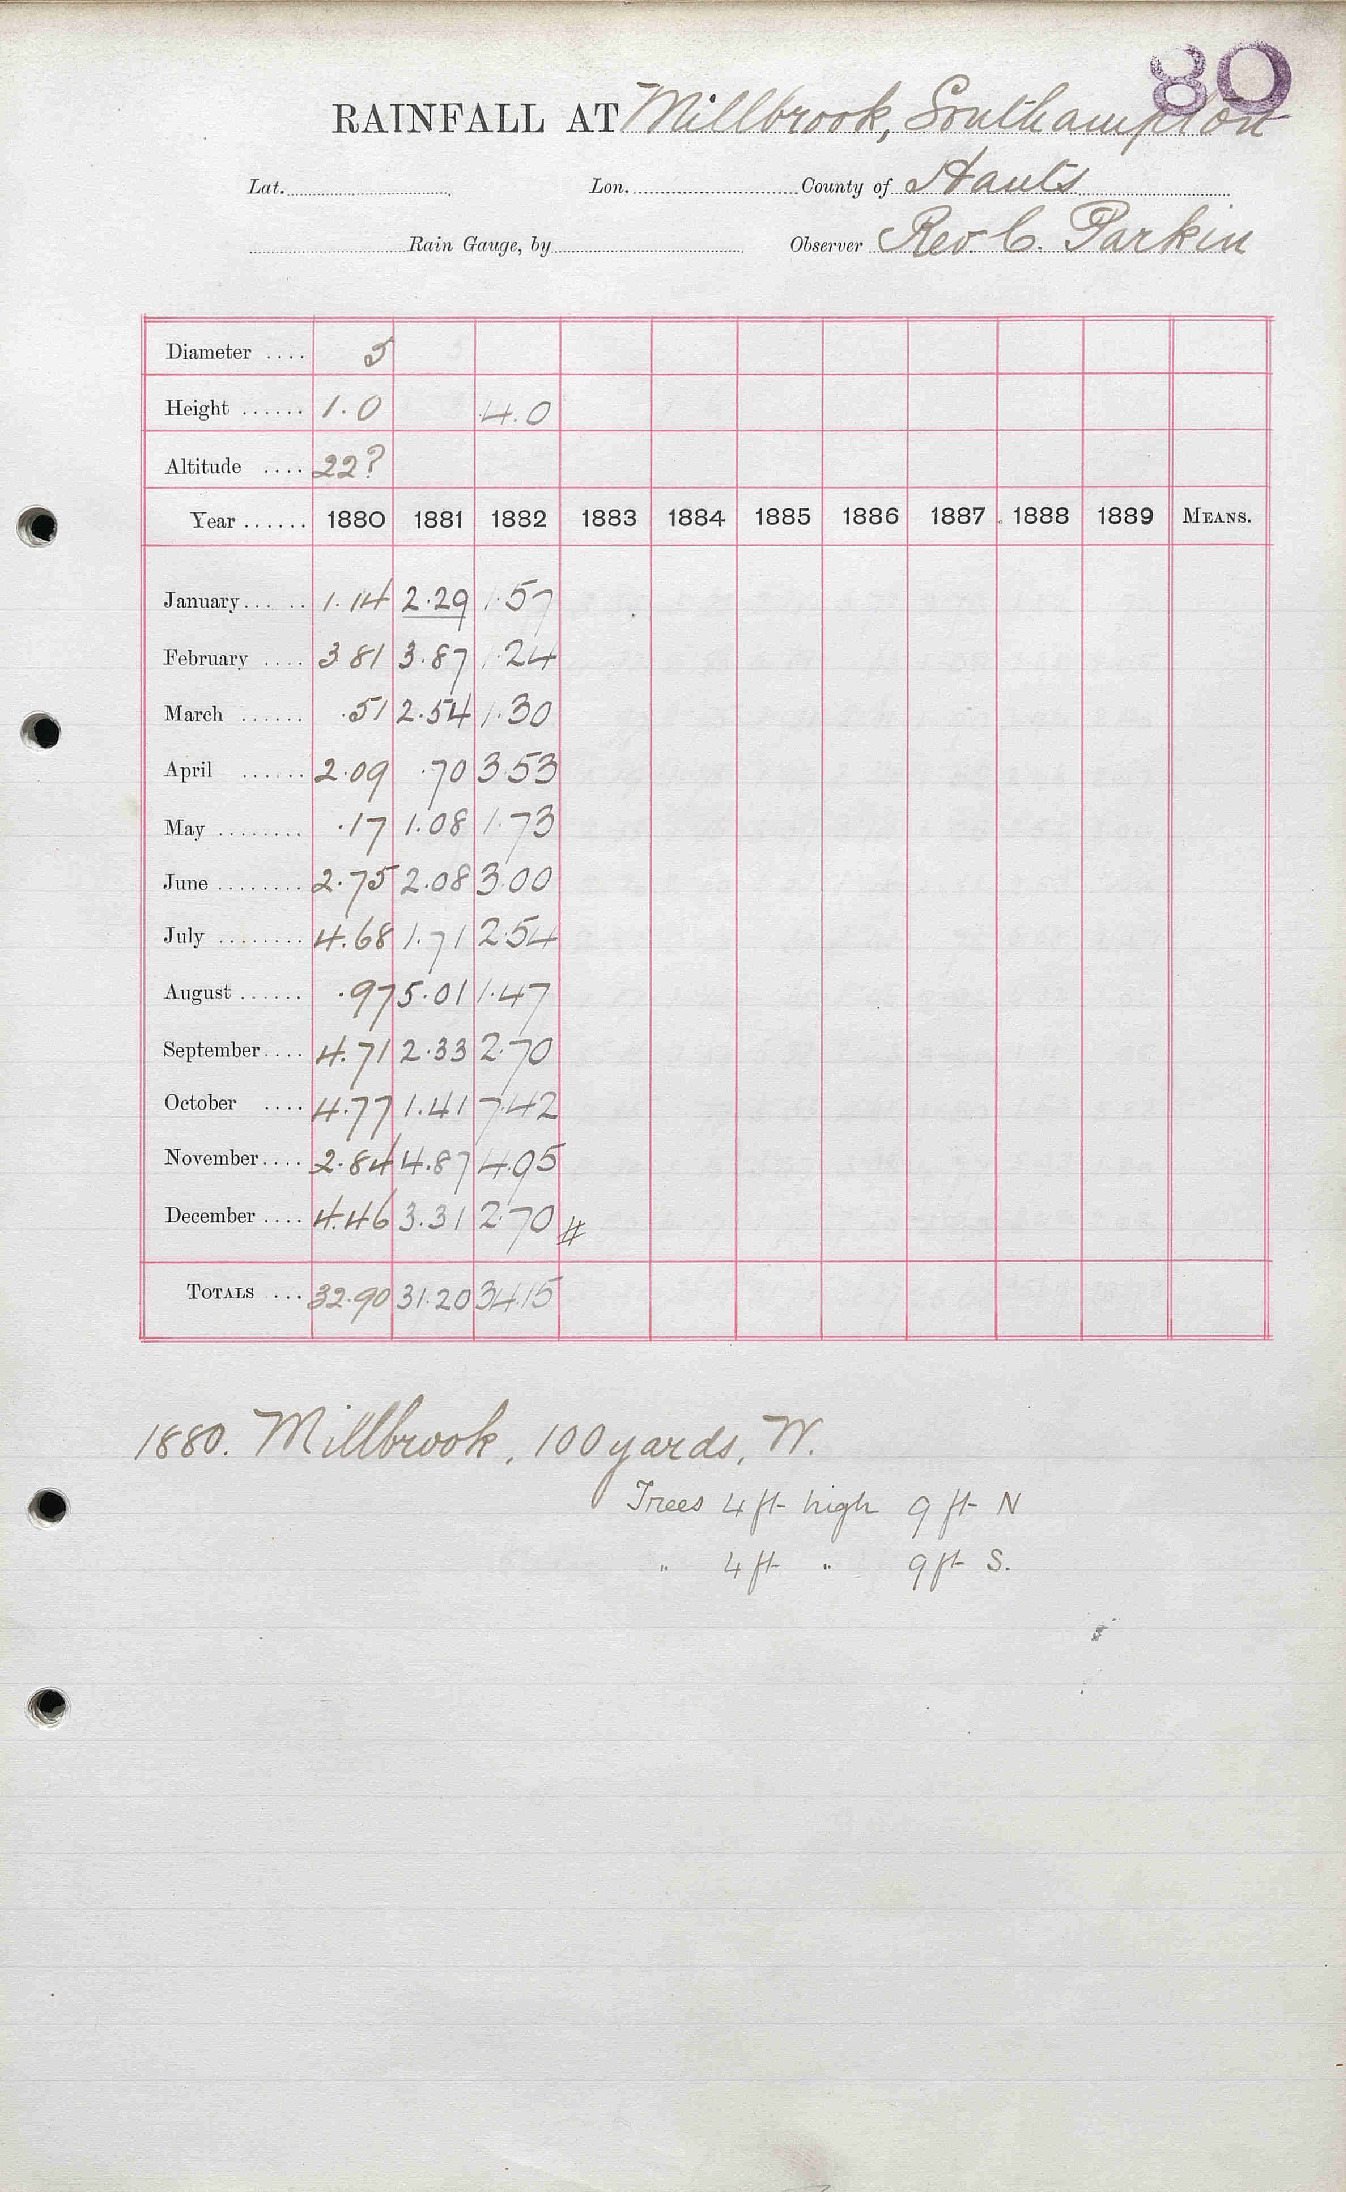 80
RAINFALL AT Millbrook, Southampton
Lat. Lon. County of Hants
Rain Gauge, by Observer Rev. C. Parkin
Diameter .... 5
Height ...... 1.0 4.0
Altitude .... 22?
Year ...... 1880 1881 1882 1883 1884 1885 1886 1887 1888 1889 MEANS.
January...... 1.14 2.29 1.57
February .... 3 81 3.87 1.24
March ...... .51 2.54 1.30
April ...... 2.09 .70 3.53
May ........ .17 1.08 1.73
June ........ 2.75 2.08 3.00
July ........ 4.68 1.71 2.54
August ...... .97 5.01 1.47
September.... 4.71 2.33 2.70
October .... 4.77 1.41 7.42
November.... 2.84 4.87 4.95
December .... 4.46 3.31 2.70 #
TOTALS ... 32.90 31.20 34.15
1880. Millbrook, 100 yards, W.
Trees 4 ft high 9 ft N
" 4 ft " 9 ft S.